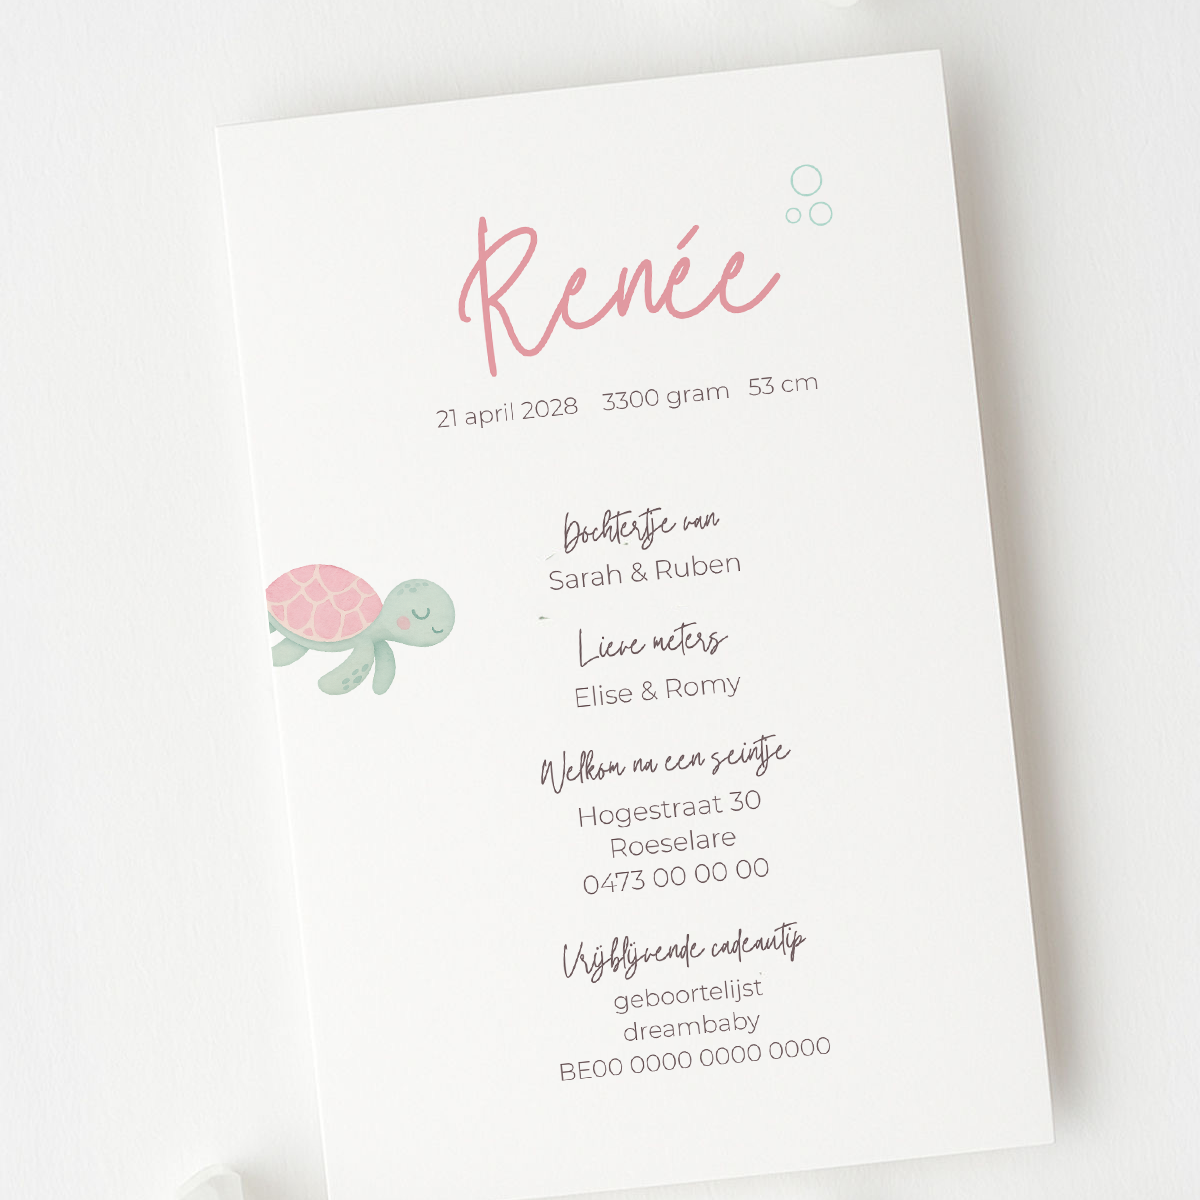 Renée
21 april 2028 3300 gram 53 cm
Dochtertje van
Sarah & Ruben
Lieve meters
Elise & Romy
Welkom na een seintje
Hogestraat 30
Roeselare
0473 00 00 00
Vrijblijvende cadeautip
geboortelijst
dreambaby
BE00 0000 0000 0000